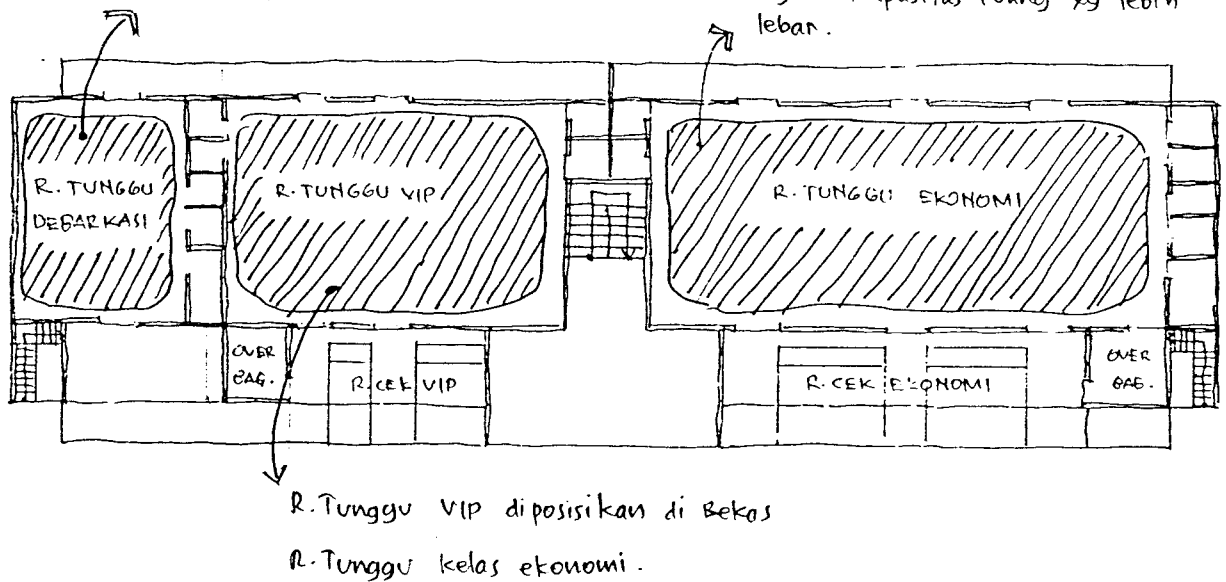 lebih
lebar.
R. TUNGGU
DEBARKASI
R. TUNGGU VIP
R. TUNGGU EKONOMI
OVER
BAG.
R. CEK VIP
R. CEK EKONOMI
OVER
BAG.
R. Tunggu VIP diposisikan di Bekas
R. Tunggu kelas ekonomi.